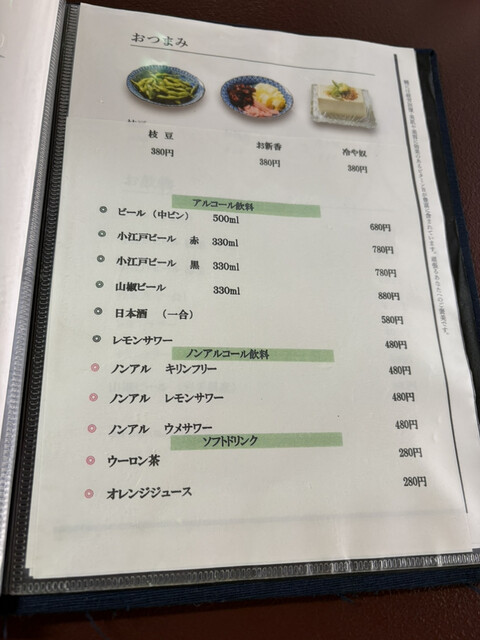 おつまみ
枝豆
380円
お新香
380円
冷や奴
380円
アルコール飲料
◎ ビール（中ビン） 500ml 680円
◎ 小江戸ビール 赤 330ml 780円
◎ 小江戸ビール 黒 330ml 780円
◎ 山椒ビール 330ml 880円
◎ 日本酒 （一合） 580円
◎ レモンサワー 480円
ノンアルコール飲料
◎ ノンアル キリンフリー 480円
◎ ノンアル レモンサワー 480円
◎ ノンアル ウメサワー 480円
ソフトドリンク
◎ ウーロン茶 280円
◎ オレンジジュース 280円